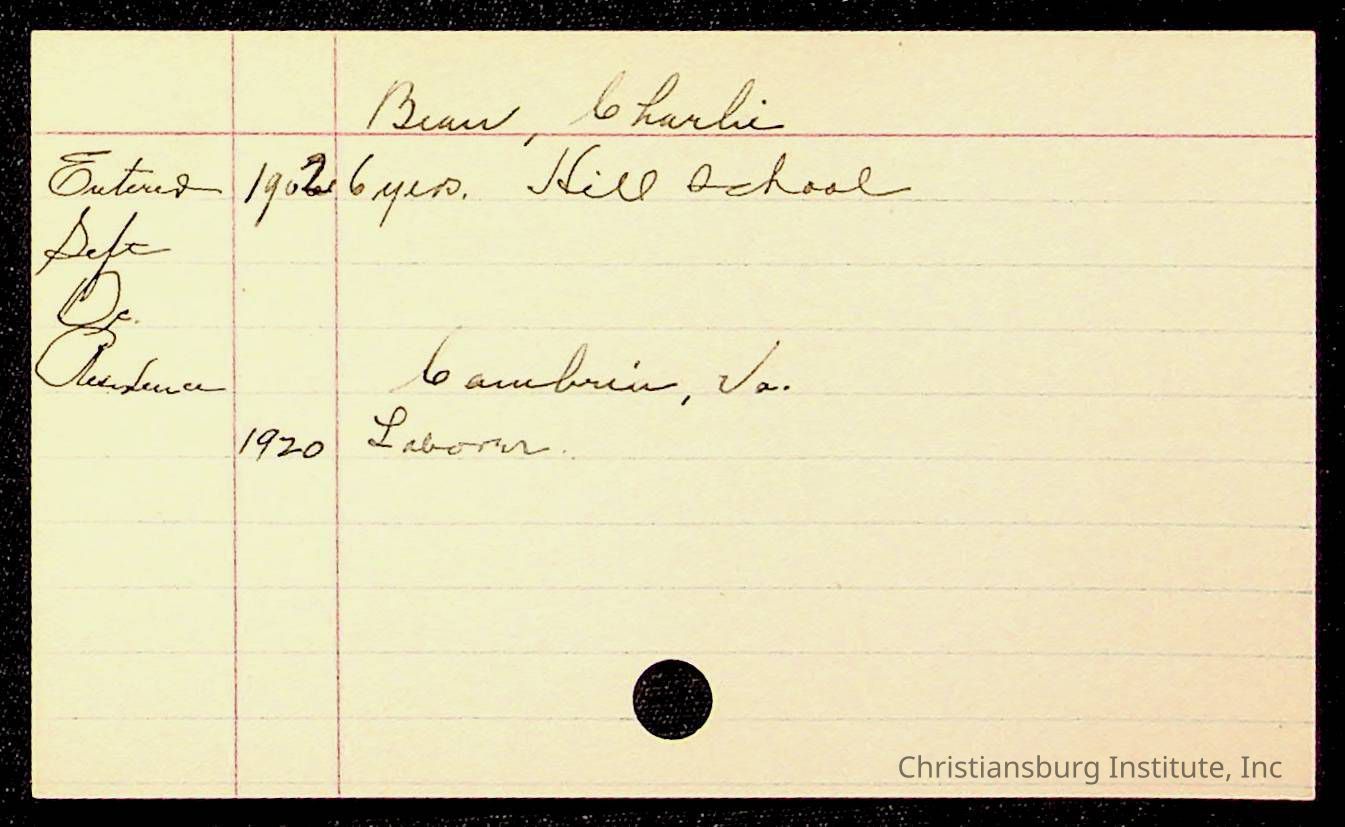 Bean, Charlie
Entered 1902 6 yers. Hill School
Left
Oc.
Residence Cambria, Va.
1920 Laborer.
Christiansburg Institute, Inc